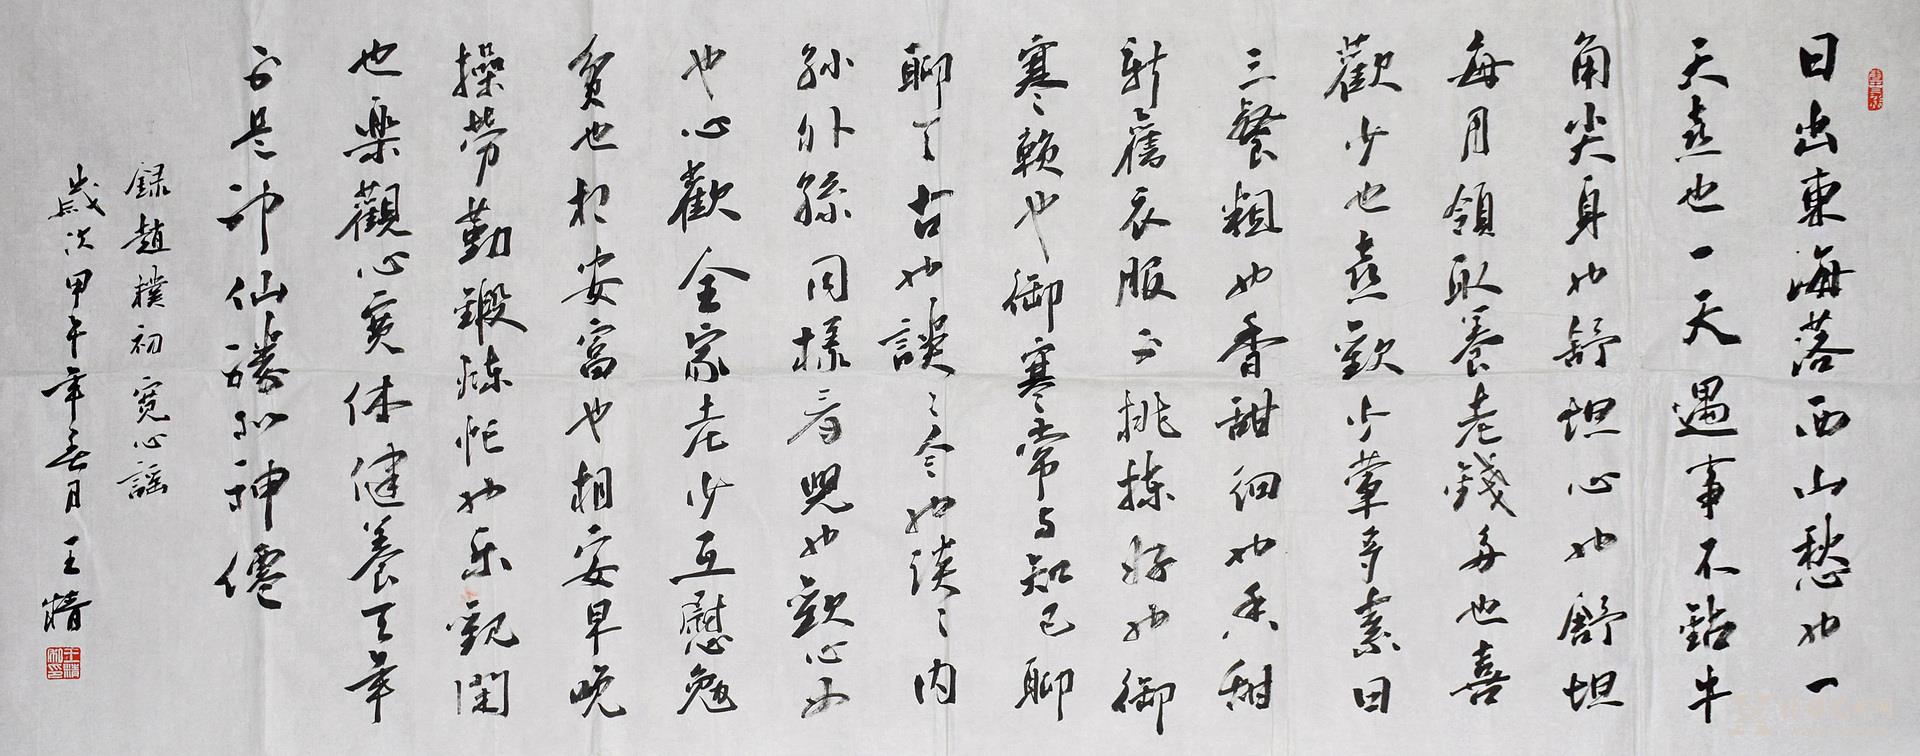 日出東海落西山愁也一
天喜也一天遇事不鉆牛
角尖身也舒坦心也舒坦
每月領取養老錢多也喜
歡少也喜歡少葷多素日
三餐粗也香甜細也香甜
新舊衣服不挑揀好也御
寒賴也御寒常与知己聊
聊天古也談〻今也談〻内
孫外孫同樣看兒也歡心女
也心歡全家老少互慰勉
貧也相安富也相安早晚
操勞勤鍛煉忙也乐觀閑
也樂觀心寬体健養天年
不是神仙勝似神僊
録趙樸初寬心謡
歲次甲午年春月王精